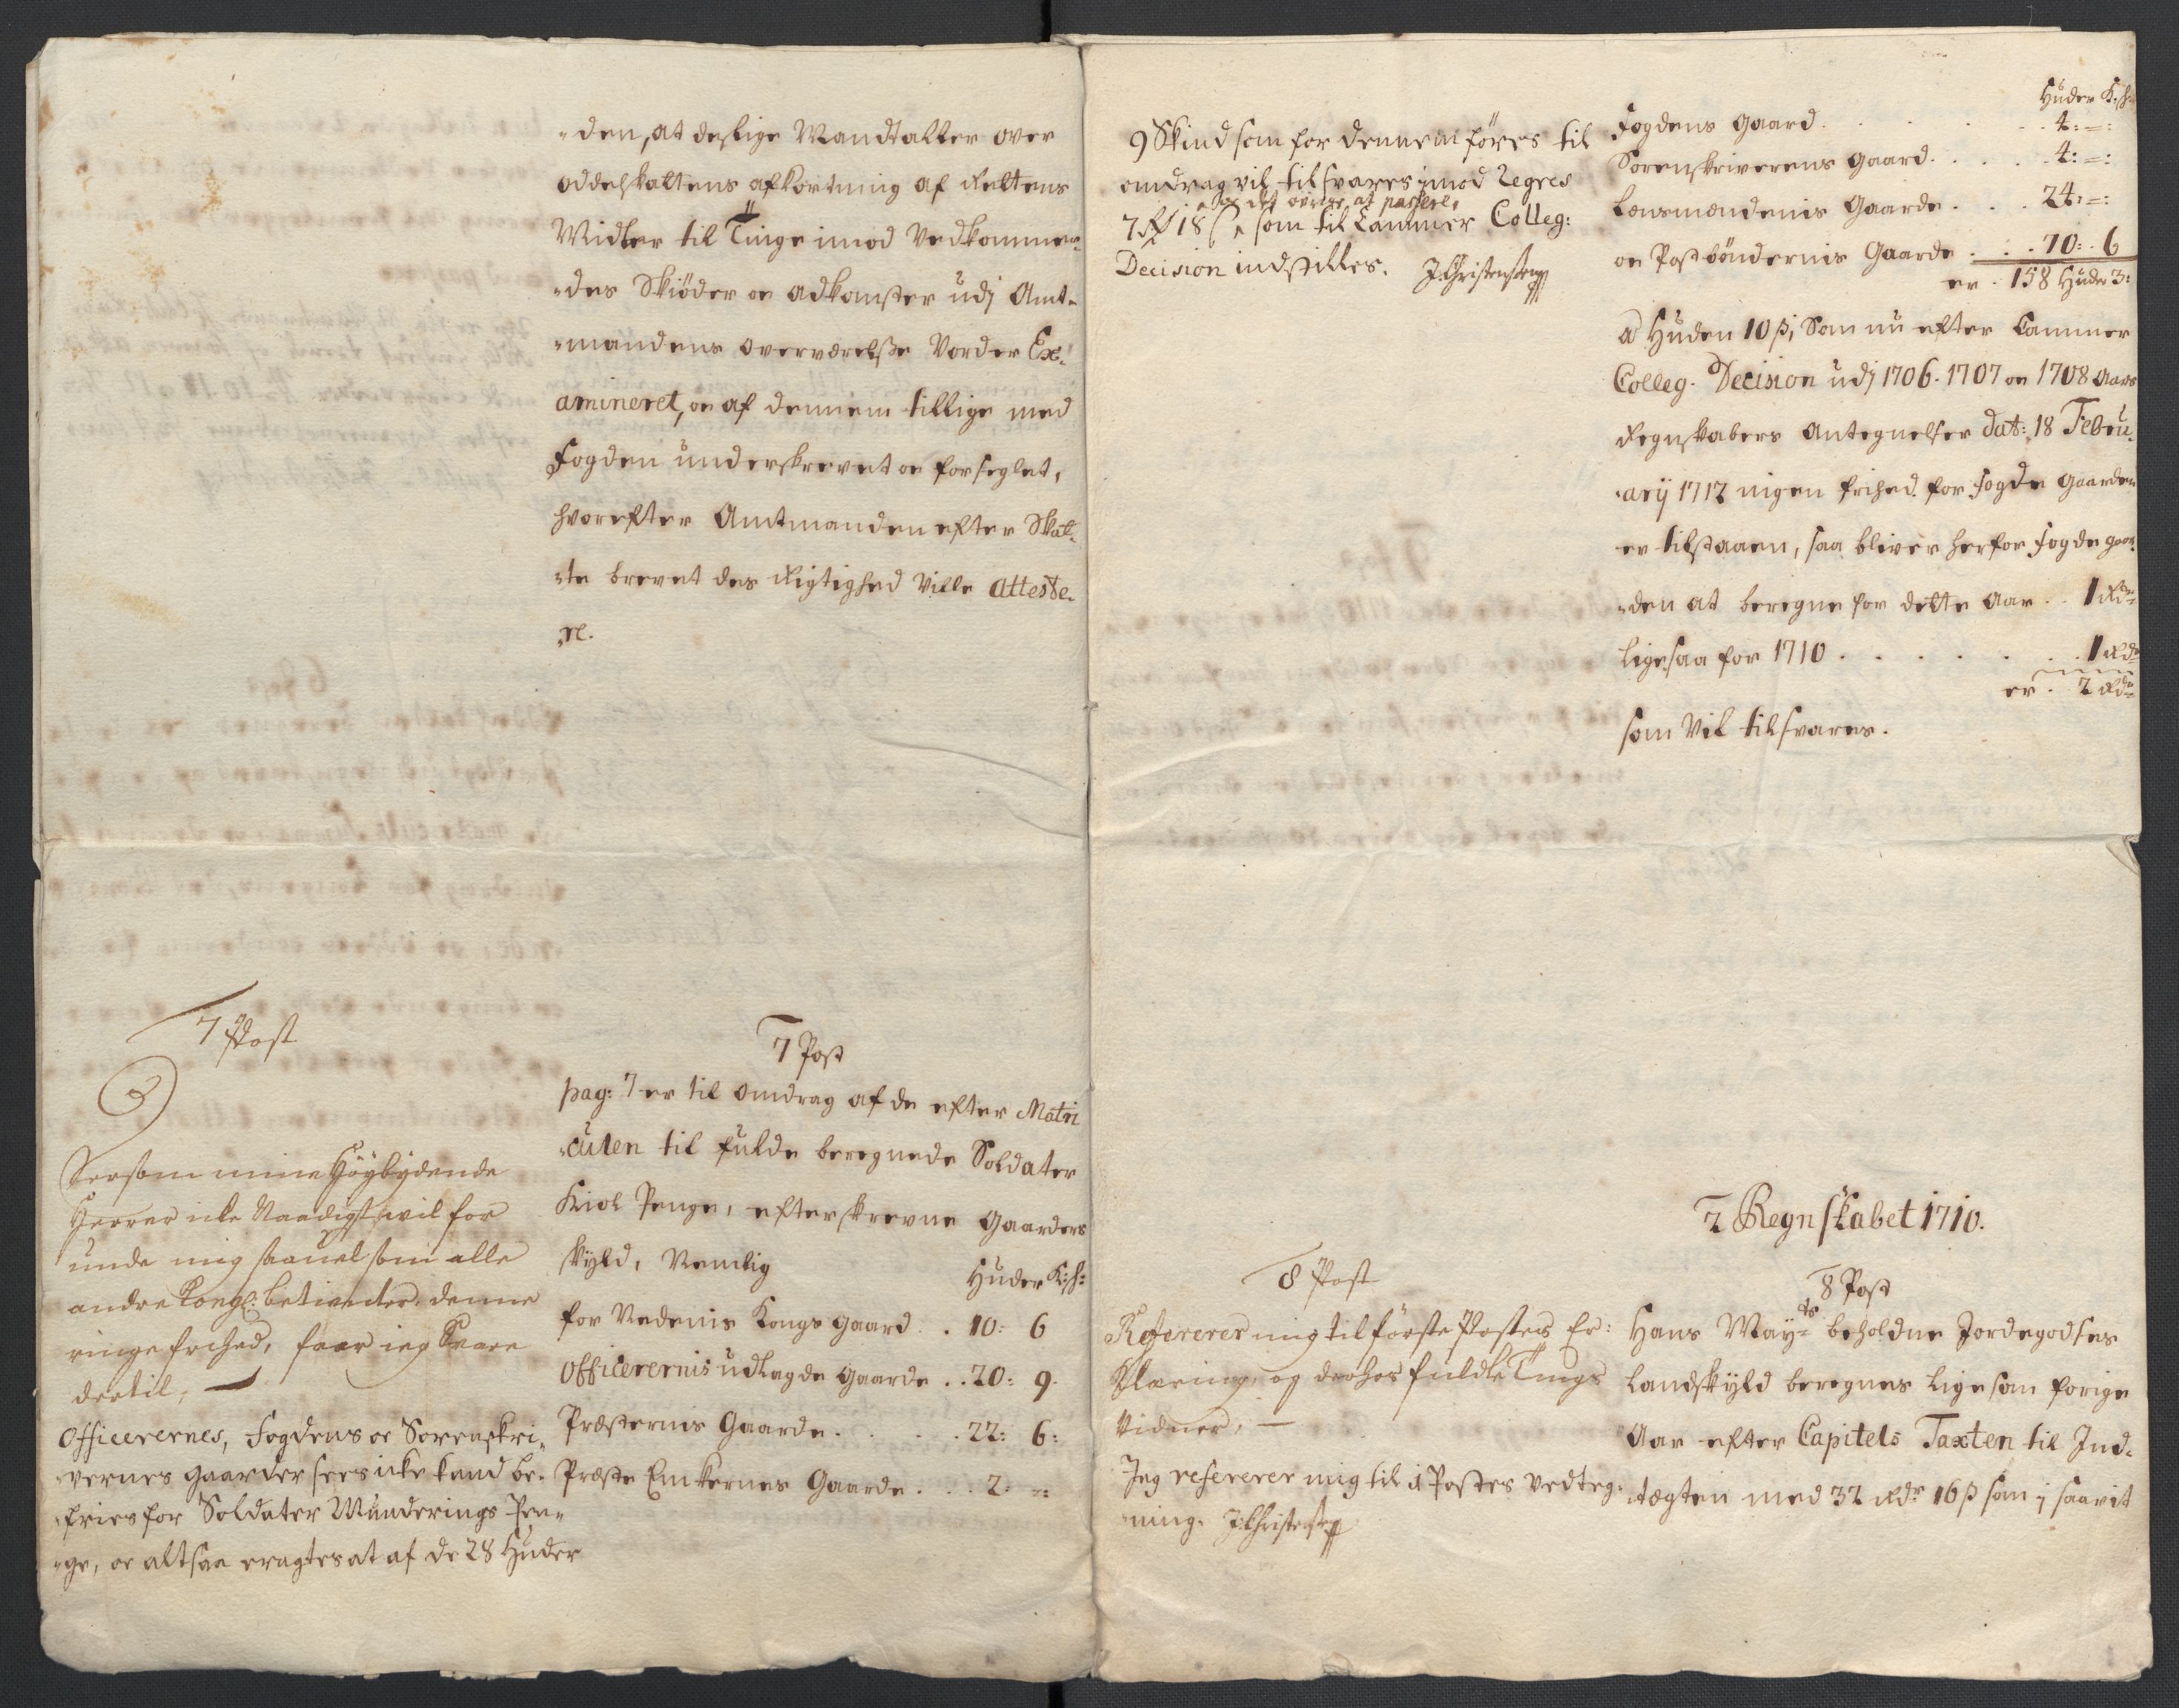 -den, at deslige Mandtaller over
Oddelskattens afkortning af Rettens
Midler til Tinge imod Vedkommen-
-des Skiøder oc adkomster udj Amt-
-mandens overværelsse Vorder Ex-
amineret, oc af dennem tillige med
Fogden underskrevet oc forseglet,
hvorefter Amtmanden efter Skat-
-te brevet des Rigtighed Ville Atteste-
-re.
7 Post
Saasom mine Høybydende
Herrer icke Naadigst vil for
unde mig saauelsom alle
andre Kongl: betienter, denne
ringe frihed, faar ieg Svare
dertil,
Officerernes, Fogdens oc Sorenskri-
-vernes gaarder sees icke kand be-
-fries for Soldater Munderings Pen-
-ge, oc altsaa eragtes at af de 28 Huder
7 Post
pag: 7 er til omdrag af de efter Matri
-culen til fulde beregnede Soldater
Kiol Penge, efterskrevne Gaarders
skyld, Nemlig Huder K:sk:
for Nedenis Kongs gaard . . 10: 6
Officerernis udlagde Gaarde . . 20: 9.
Præsternis Gaarde . . . . 22: 6:
Præste Enkernes Gaarde . . . 2: -:
9 Skind som for dennem føres til
omdrag vil tilsvares imod Regres
oc det øvrige at passere,
7 Rd 18 s som til Cammer Colleg:
Decision indstilles. J Christensen
Huder K:sk:
Fogdens gaard . . . . . 4: -:
Sorenskriverens gaard . . . . 4: -:
Lensmændenis Gaarde . . . 24: -:
oc Postbøndernis Gaarde . . . 70: 6
er . 158 Huder 3:
a Huden 10 ß, Som nu efter Cammer
Colleg. Decision udj 1706. 1707 oc 1708 Aars
Regnskabers Antegnelser dat: 18 Febru-
-arij 1712 ingen frihed for Fogde gaarden
er tilstaaen, saa bliver herfor Fogde gaar-
-den at beregne for dette Aar . . 1 Rdr
Ligesaa for 1710 . . . . . . 1 Rdr
er . 2 Rdr
som Vil tilsvares.
8 Post
Refererer mig til første Postes Er:
Klæring, og derhos fuldte Tings
Vidner,
Jeg refererer mig til 1 Postes Vedteg-
-ning. J Christensen
2 Regnskabet 1710.
8 Post
Hans May:ts beholdne Jordegodses
Landskyld beregnes ligesom forige
Aar efter Capitels Taxten til Ind-
-tægten med 32 Rdr 16 ß som j saavit